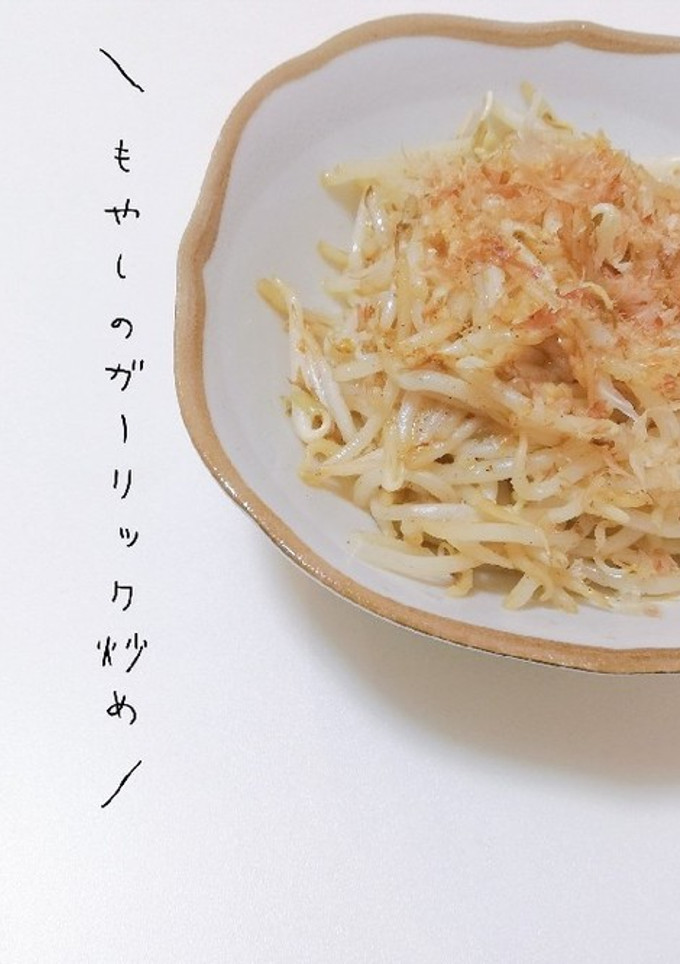 \もやしのガーリック炒め/